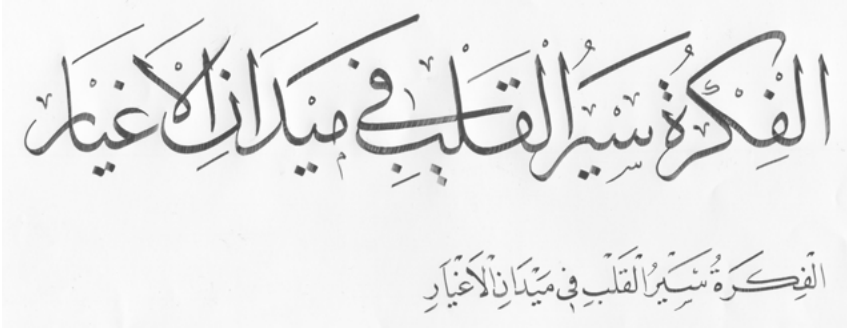 الْفِكْرَةُ سَيْرُ الْقَلْبِ فِي مَيْدَانِ الْأَغْيَارِ
الْفِكْرَةُ سَيْرُ الْقَلْبِ فِي مَيْدَانِ الْأَغْيَارِ